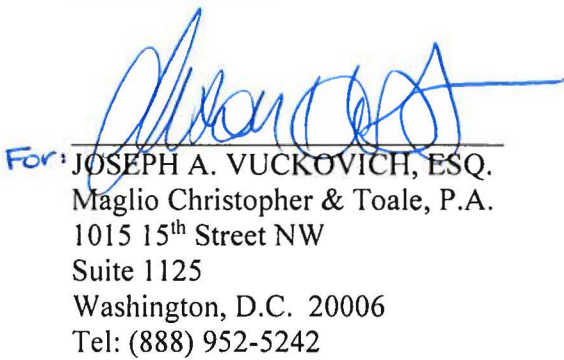 For: JOSEPH A. VUCKOVICH, ESQ.
Maglio Christopher & Toale, P.A.
1015 15th Street NW
Suite 1125
Washington, D.C. 20006
Tel: (888) 952-5242